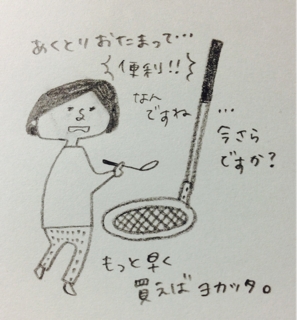 あくとりおたまって…
便利!!
なん
ですね
…
今さら
ですか?
もっと早く
買えばヨカッタ。